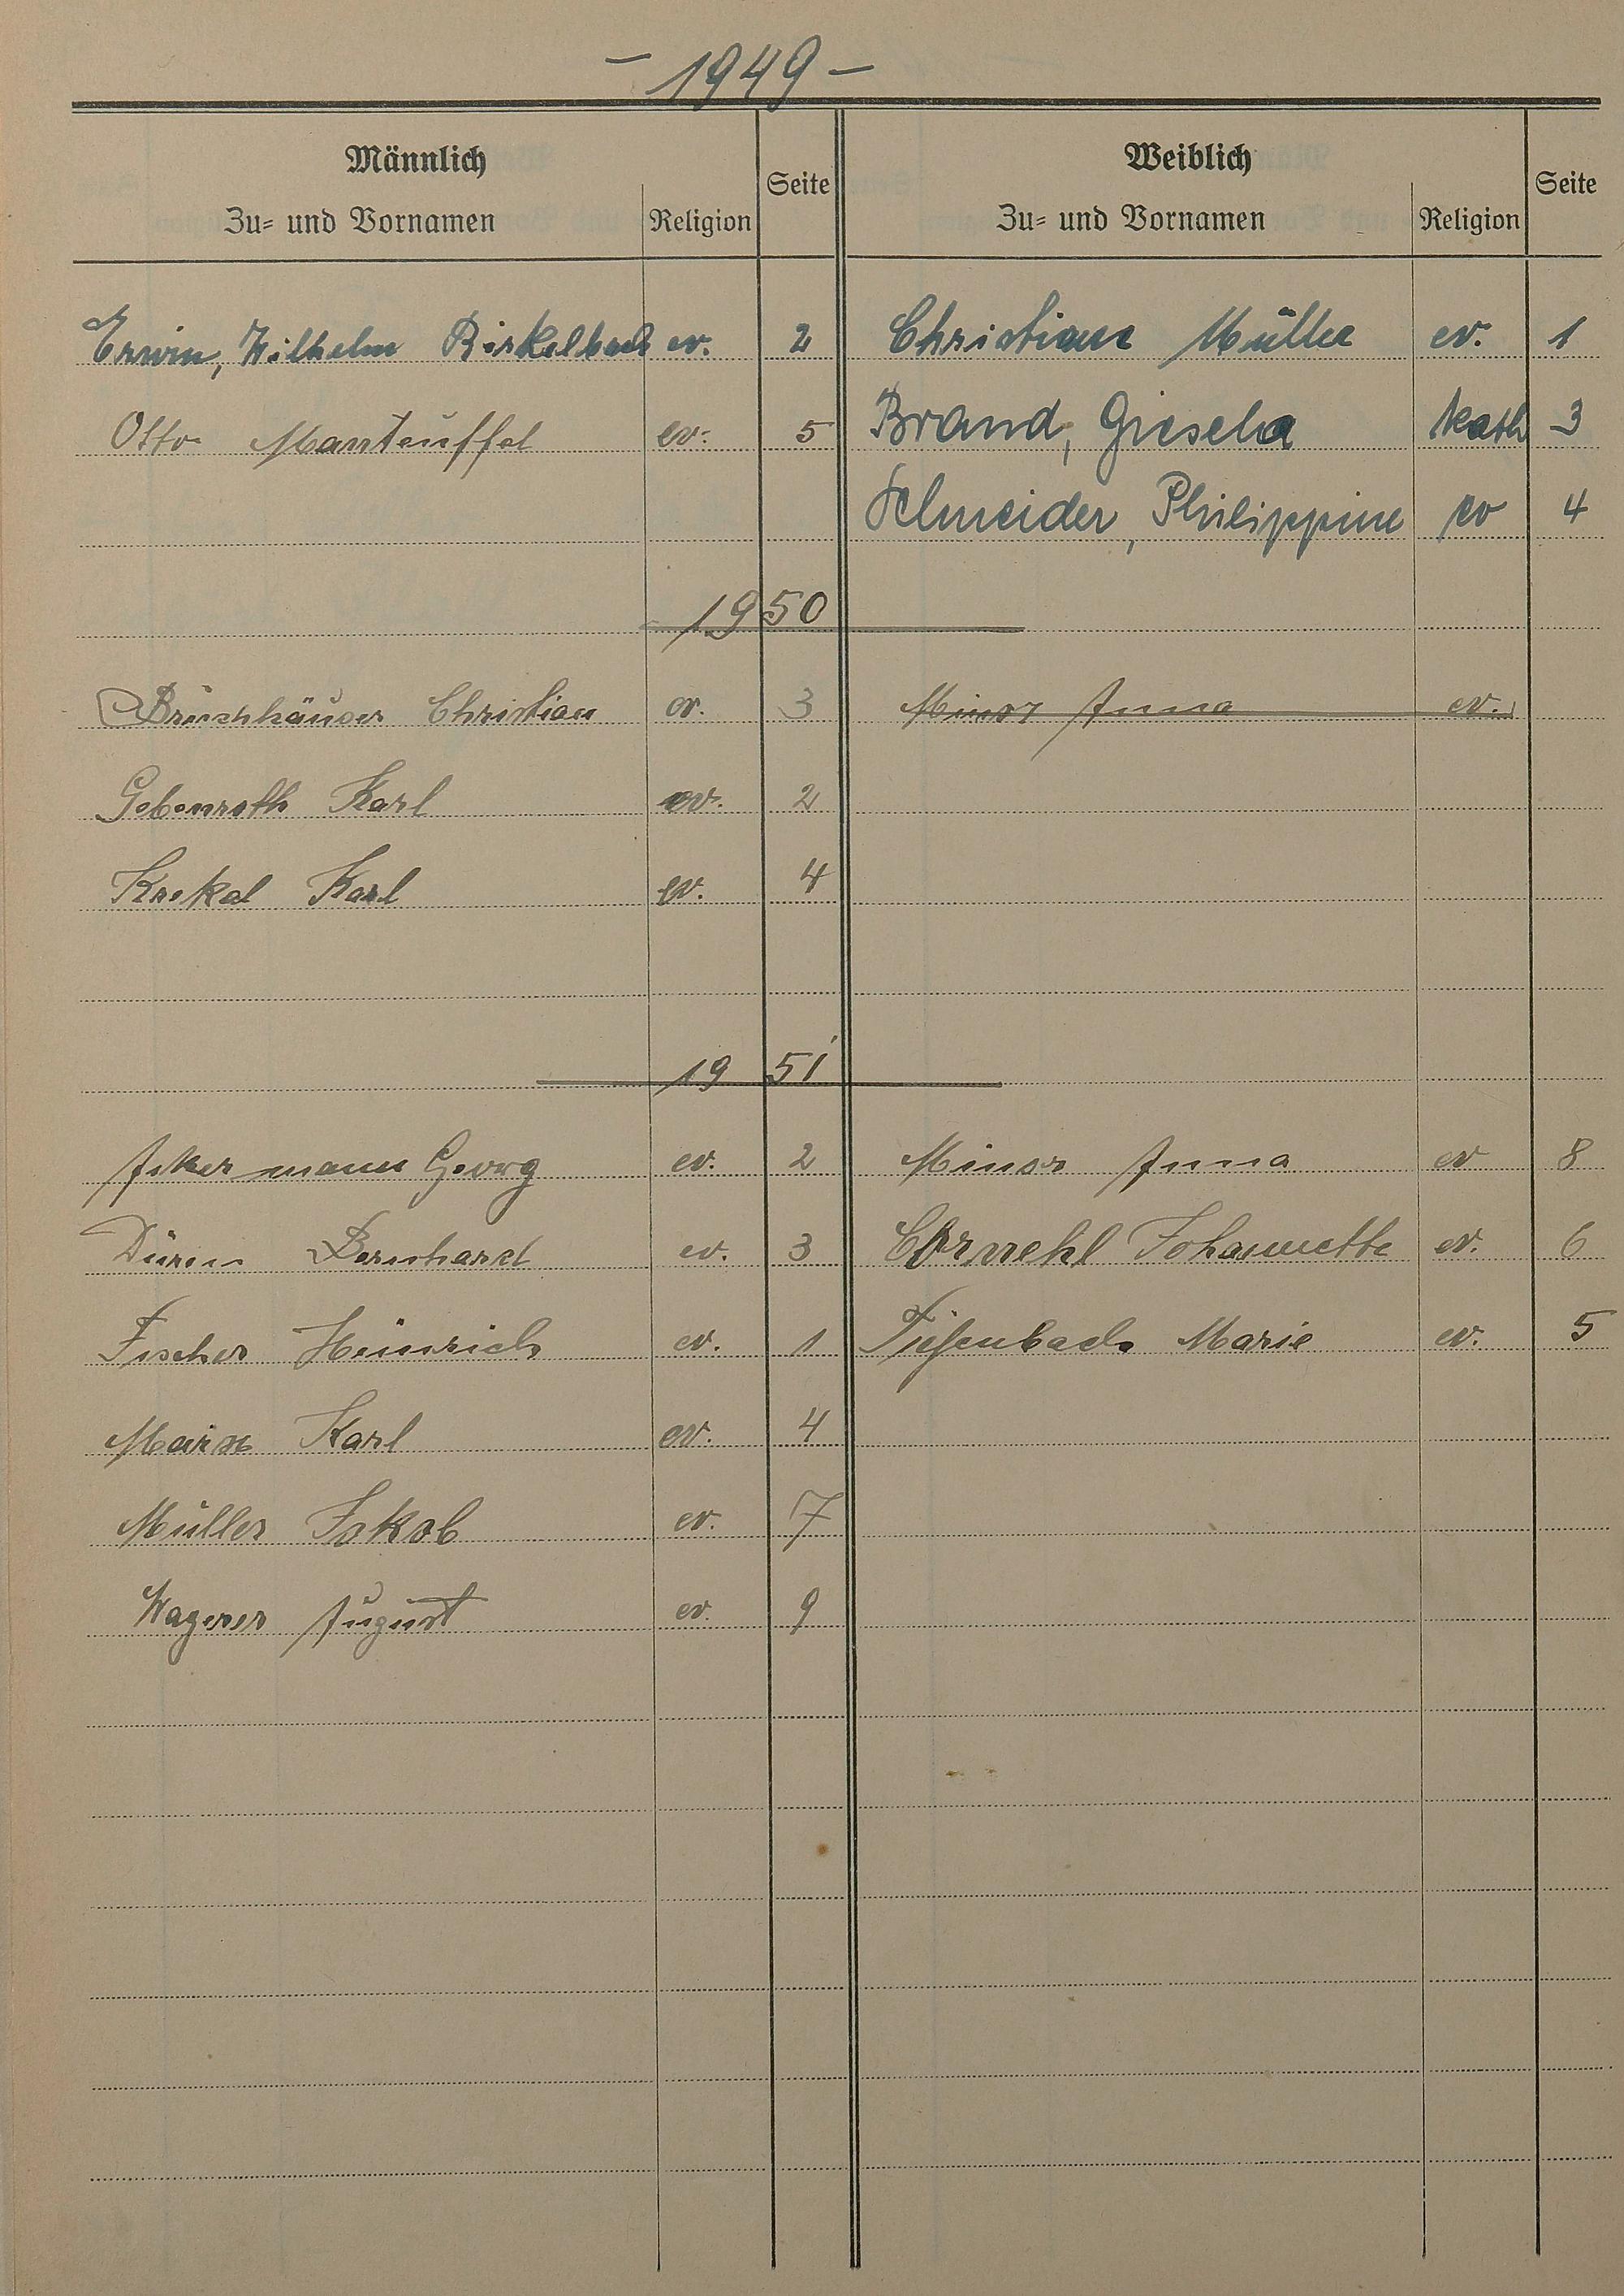 - 1949 -
Männlich Weiblich
Zu- und Vornamen Religion Seite Zu- und Vornamen Religion Seite
Erwin, Wilhelm Birkelbach ev. 2 Christiane Müller ev. 1
Otto Manteuffel ev. 5 Brand, Giesela Kath 3
Schneider, Philippine ev 4
1950
Bruchhäuser Christian ev. 3 Minor Anna ev.
Gebenroth Karl ev. 2
Krekel Karl ev. 4
1951
Ackermann Georg ev. 2 Minor Anna ev 8
Düren Bernhard ev. 3 Cornehl Johannette ev. 6
Fischer Heinrich ev. 1 Tiefenbach Marie ev. 5
Karl ev. 4
Müller Jakob ev. 7
Wagner August ev. 9